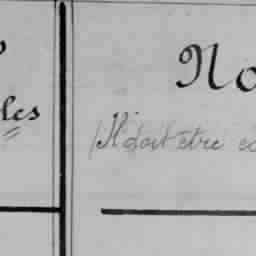 les
No
Il doit être